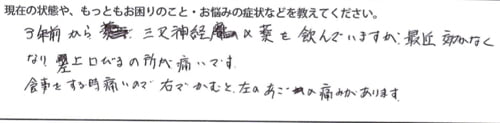 現在の状態や、もっともお困りのこと・お悩みの症状などを教えてください。
3年前から 三叉神経の薬を飲んでいますが、最近 効かなく
なり 上口びるの所が痛いです。
食事をする時痛いので 右でかむと、左のあごの痛みがあります。